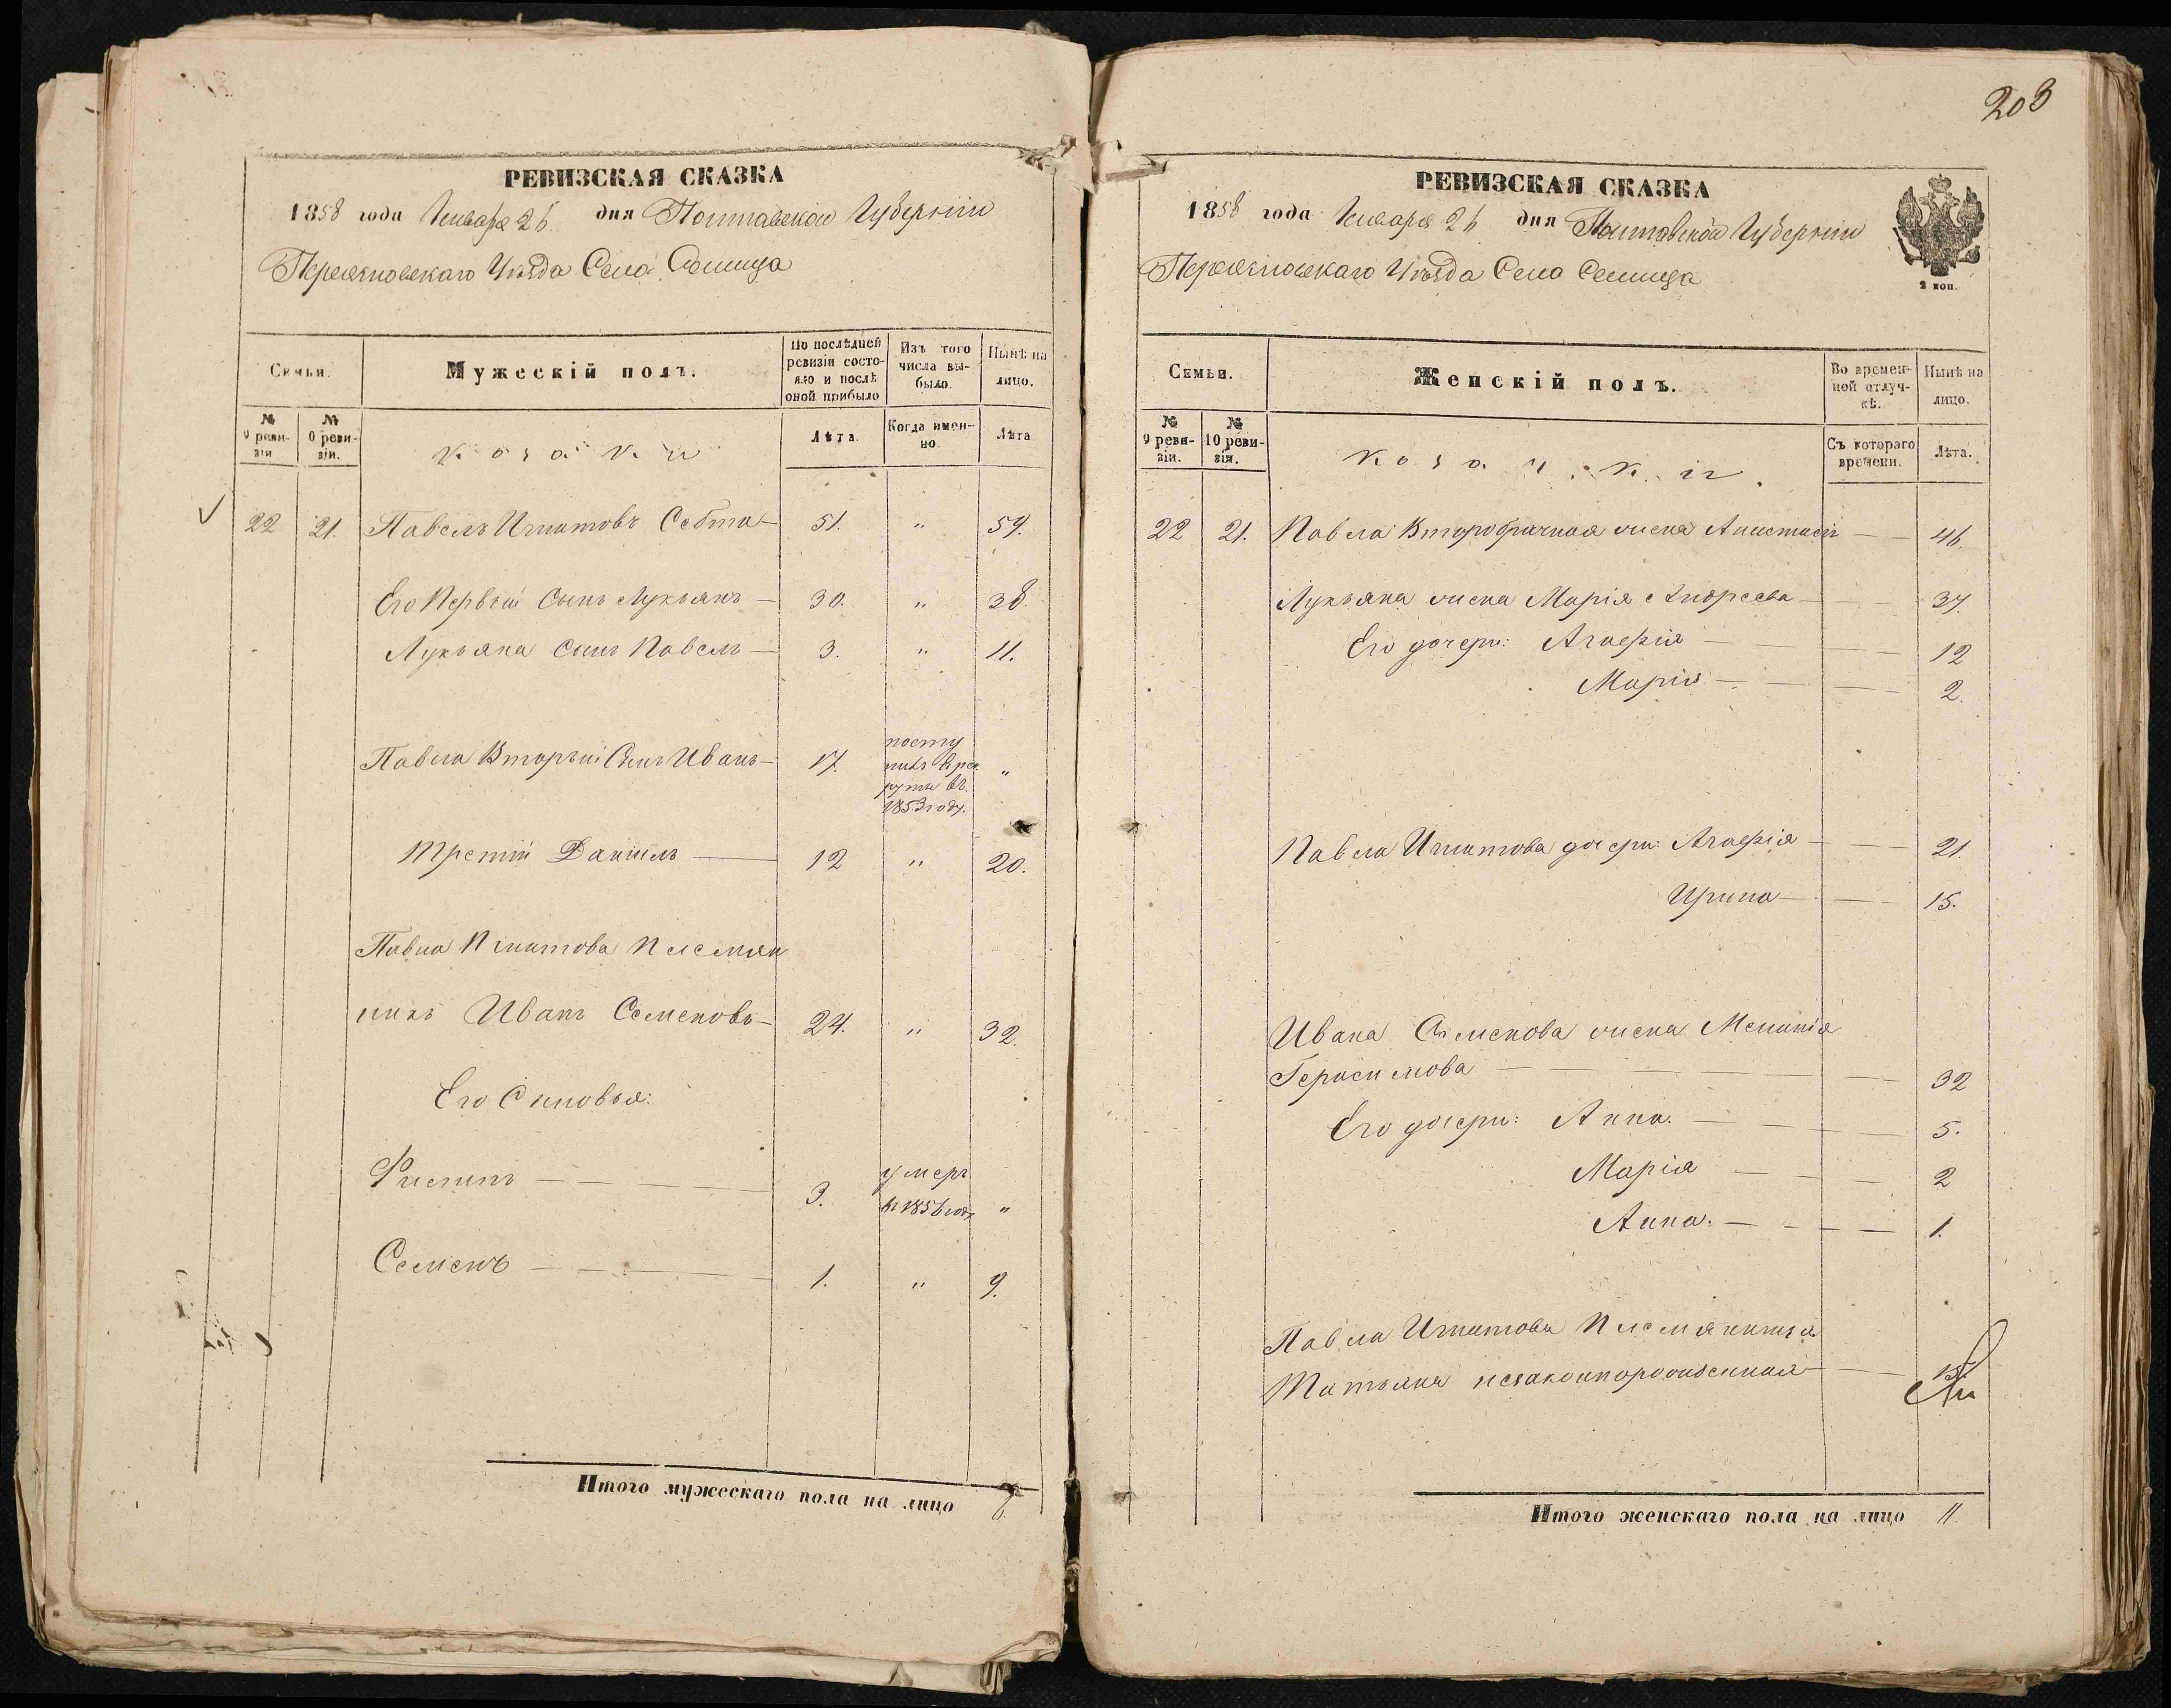 203
РЕВИЗСКАЯ СКАЗКА
1858 года Января 26 дня Полтавской Губерніи
Переяславскаго Уѣзда Села Селища
Семьи.
Мужескій полъ.
По послѣдней ревизіи состояло и послѣ оной прибыло
Изъ того числа выбыло.
Нынѣ на лицо.
№ 9 ревизіи
№ 10 ревизіи.
козаки
Лѣта.
Когда именно.
Лѣта
22 21. Павелъ Игнатовъ 51. " 59.
Его Первый Сынъ Лукъянъ 30. " 38.
Лукъяна Сынъ Павелъ 3. " 11.
Павла Вторый Сынъ Иванъ 17. поступилъ в рекруты въ 1853 году. "
третій Даніилъ 12 " 20.
Павла Игнатова Племян
никъ Иванъ Семеновъ 24. " 32.
Его Сыновья:
Филипъ 3. умеръ въ 1856 году "
Семенъ 1. " 9.
Итого мужескаго пола на лицо
РЕВИЗСКАЯ СКАЗКА
1858 года Января 26 дня Полтавской Губерніи
Переяславскаго Уѣзда Села Селища
2 коп.
Семьи.
Женскій полъ.
Во временной отлучкѣ.
Нынѣ на лицо.
№ 9 ревизіи.
№ 10 ревизіи.
козачки.
Съ котораго времени.
Лѣта.
22 21. Павла Второбрачная жена Анастасія 46.
Лукъяна жена Марія Андреева 37.
Его дочери: Агафія 12
Марія 2.
Павла Игнатова дочери: Агафія 21.
Ирина 15.
Ивана Семенова жена Меланія
Герасимова 32
Его дочери: Анна. 5.
Марія 2
Анна. 1.
Павла Игнатова Племянница
Татьяна незаконнорожденная
Итого женскаго пола на лицо 11.